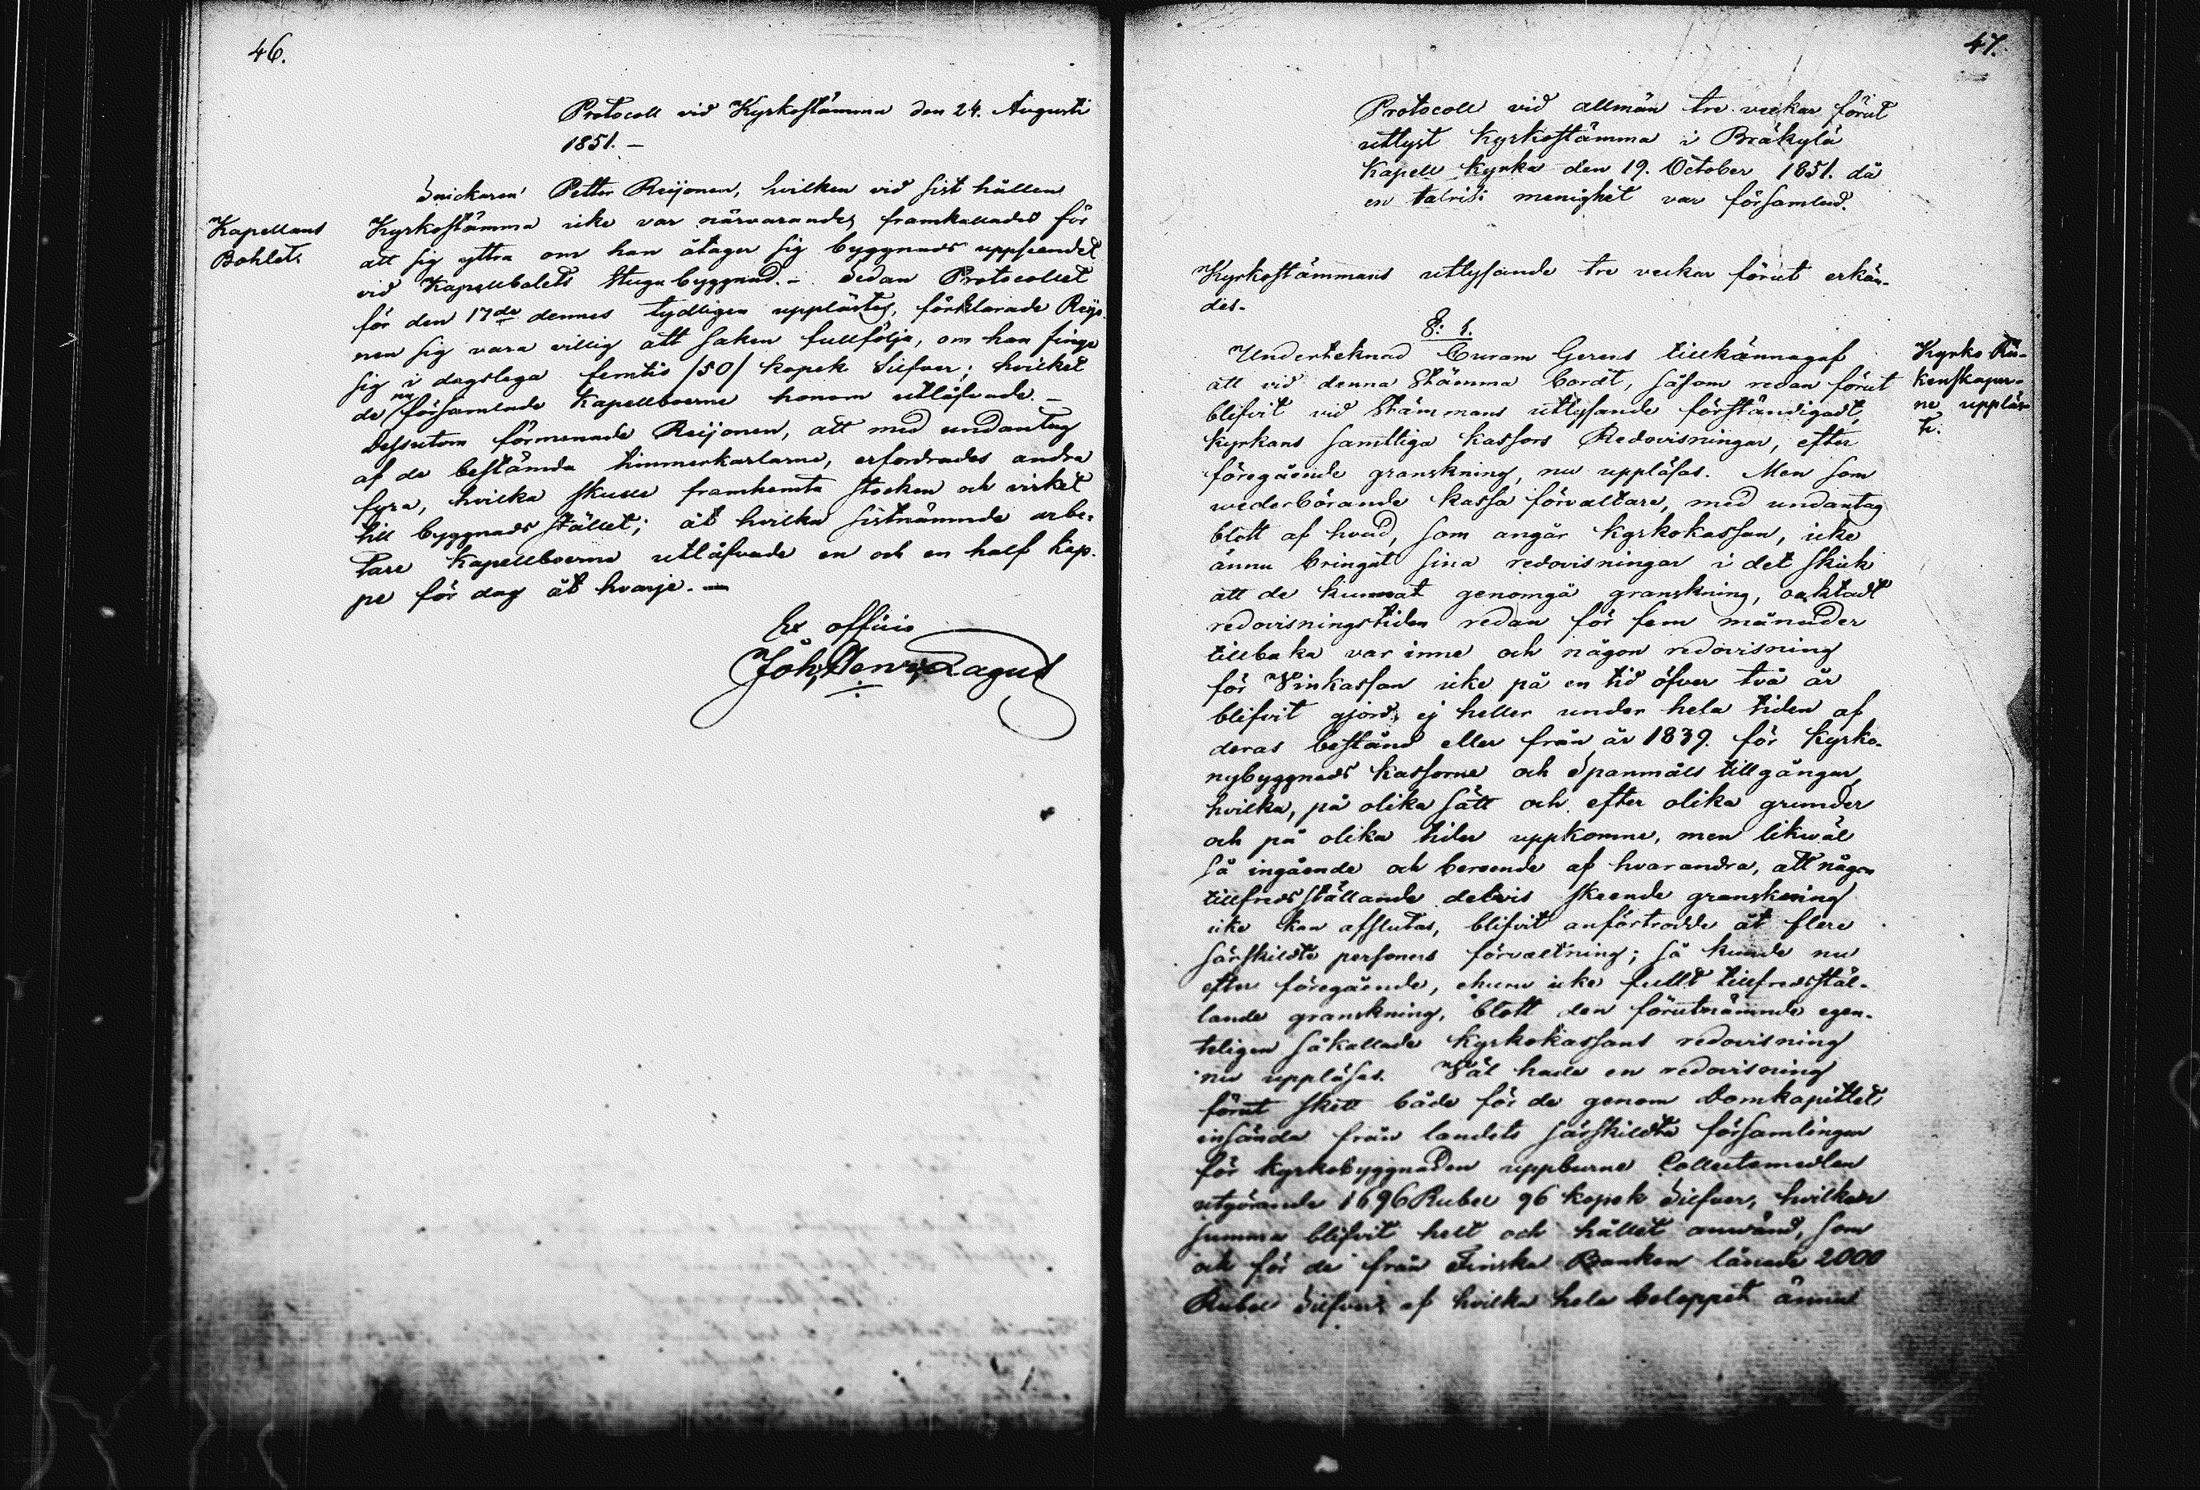 46.
Protocoll vid Kyrkostämma den 24. Augusti
1851. –
Snickaren Petter Reijonen, hvilken vid sist hållen
Kapellans
Bohlet.
Kyrkostämma icke var närvarande, framkallades för
att sig yttra om han åtager sig byggnads uppseendet
vid Kapellbolets Stuga byggnad. – Sedan Protocollet
för den 17de dennes tydligen upplästes, förklarade Reijo-
nen sig vara villig att saken fullfölja, om han finge
sig i dagslega femtio /50/ kopek Silfver; hvilket
de nu församlade Kapellboerne honom utlåfvade. –
Dessutom förmenade Reijonen, att med undantag
af de bestämda timmerkarlarne, erfordrades andra
fyra, hvilka skulle framhemta stocken och virket
till byggnads stället; åt hvilka sistnämnde arbe-
tare Kapellboerne utlåfvade en och en half kap-
pe för dag åt hvarje. –
Ex officio
Joh. Henr. Lagus
47.
Protocoll vid allmän tre veckor förut
utlyst Kyrkostämma i Bräkylä
Kapell kyrka den 19. October 1851. då
en talrik menighet var församlad.
Kyrkostämmans utlysande tre veckor förut erkän-
des.
§: 1.
Kyrko Rä-
kenskaper-
ne uppläs-
te.
Undertecknad Curam Gerens tillkännagaf
att vid denna Stämma bordt, såsom redan förut
blifvit vid Stämmans utlysande förständigadt,
kyrkans samtliga kassors Redovisningar, efter
föregående granskning, nu uppläsas. Men som
wederbörande kassa förvaltare, med undantag
blott af hvad, som angår kyrkokassan, icke
ännu bringat sina redovisningar i det skick
att de kunnat genomgå granskning, oaktadt
redovisningstiden redan för fem månader
tillbaka var inne och någon redovisning
för Vinkassan icke på en tid öfver två år
blifvit gjord, ej heller under hela tiden af
deras bestånd eller från år 1839. för Kyrko-
nybyggnads kassorne och Spanmåls tillgångar,
hvilka, på olika sätt och efter olika grunder
och på olika tider uppkomne, men likwäl
så ingående och beroende af hvarandra, att någon
tillfredsställande delvis skeende granskning
icke kan afslutas, blifvit anförtrodde åt flere
särskildte personers förvaltning; så kunde nu
efter föregående, ehuru icke fullt tillfredsstäl-
lande granskning, blott den förutnämnde egen-
teligen såkallade Kyrkokassans redovisning
nu uppläsas. Väl hade en redovisning
förut skett både för de genom Domkapitlet
insände från landets särskildta församlingar
för kyrkobyggnaden uppburne Collectemedlen
utgörande 1696 Rubel 96 kopek Silfver, hvilken
summa blifvit helt och hållet använd, som
ock för de från Finska Banken lånade 2000
Rubel Silfver, af hvilka hela beloppet ännu